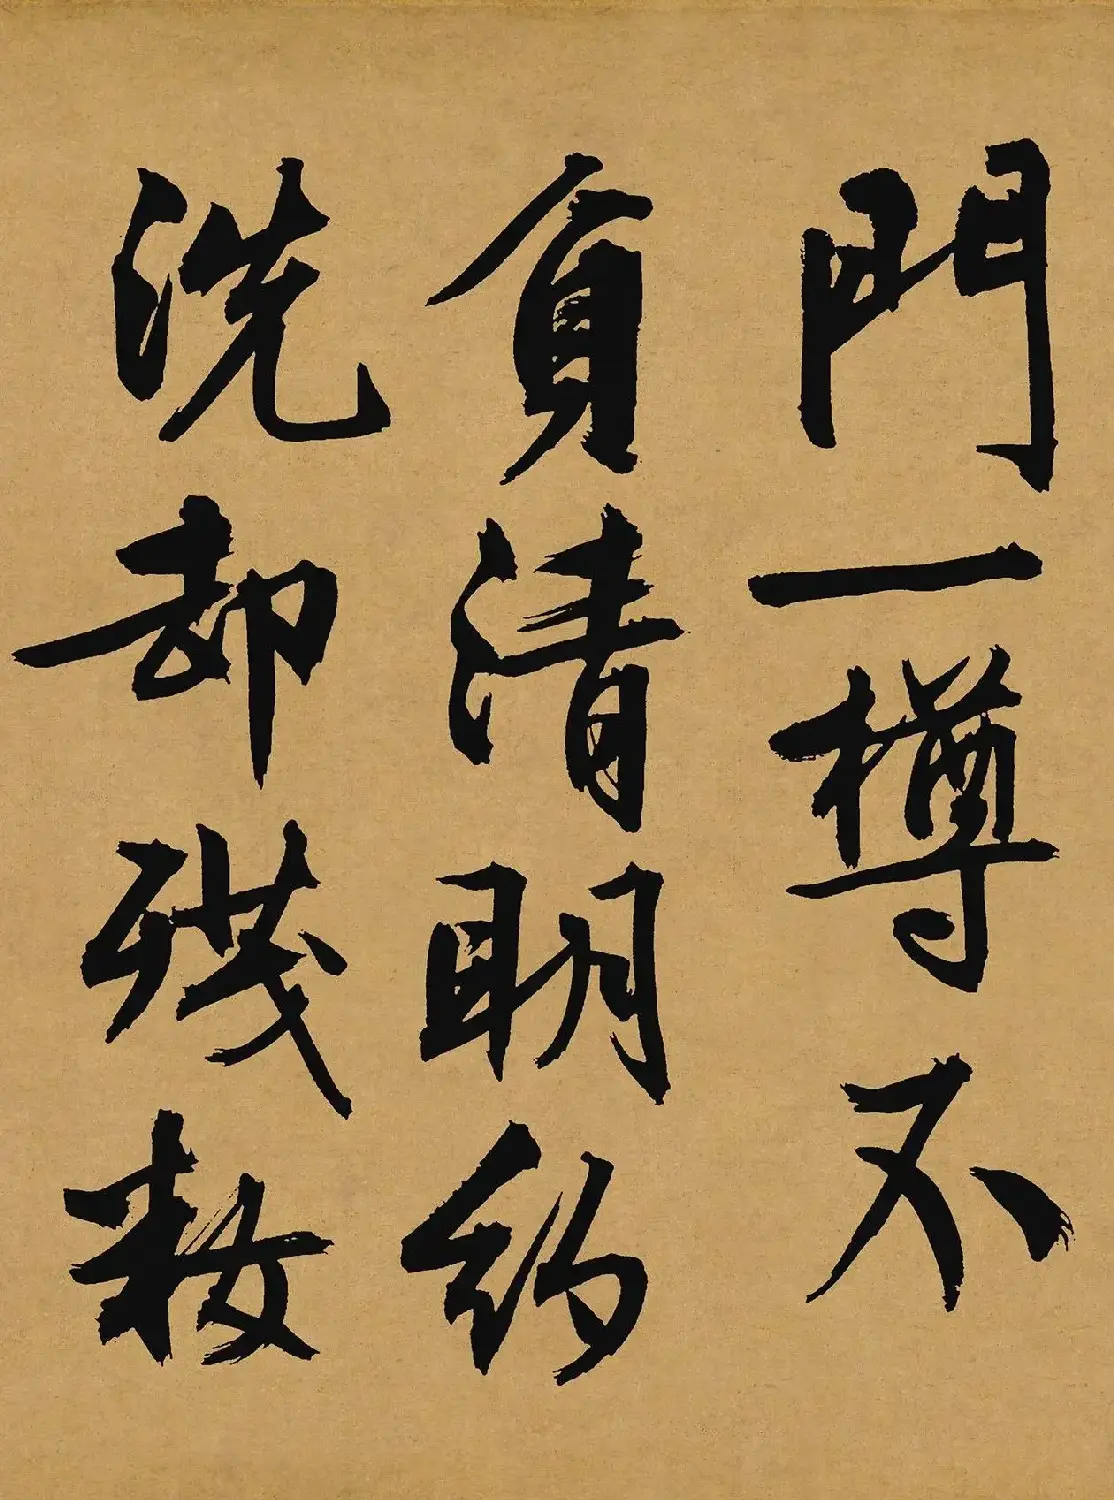 門一樽不
負清明約
洗却殘妝